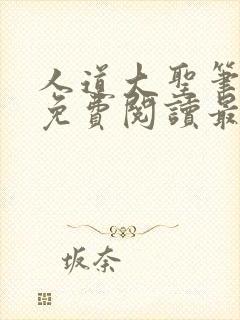 人道大聖筆
免費閱讀最
坂奈